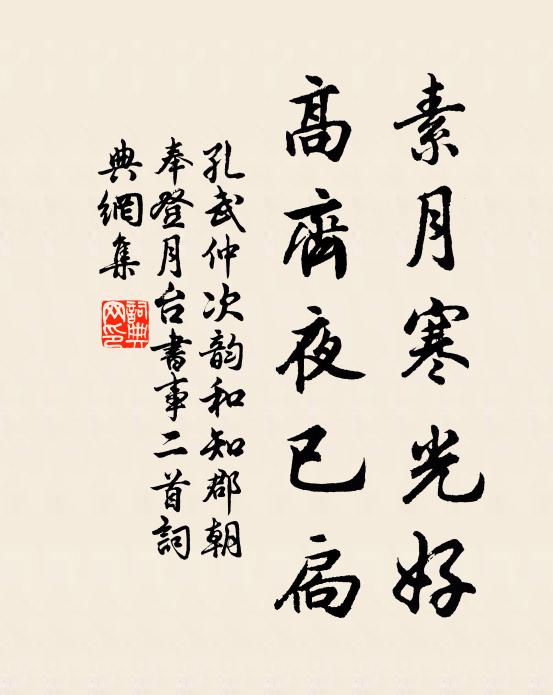 素月寒光好
高齊夜已扃
孔武仲次韵和知郡朝
奉登月台書事二首詞
典網集
詞典网印